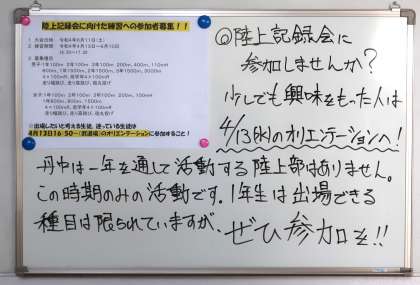 陸上記録会に向けた練習への参加者募集！！
1 大会日時 令和4年6月11日(土)
2 練習期間 令和4年4月15日~6月10日
3 募集種目
男子:1年100m 2年100m 3年100m 200m, 400m, 110mH
800m, 1年1500m 2年1500m 3年1500m, 3000m
4×100mR, 低学年4×100mR
走り幅跳び, 走り高跳び, 砲丸投げ
女子:1年100m 2年100m 3年100m 200m, 100mH
1年800m, 800m, 1500m
4×100mR, 低学年4×100mR
走り幅跳び, 走り高跳び, 砲丸投げ
◎出場したいと考える生徒、迷っている生徒は
4月13日16:50~(武道場)のオリエンテーションに参加すること!
◎陸上記録会に
参加しませんか?
少しでも興味をもった人は
4/13(水)のオリエンテーションへ!
丹中は一年を通して活動する陸上部はありません。
この時期のみの活動です。1年生は出場できる
種目は限られていますが、ぜひ参加を!!